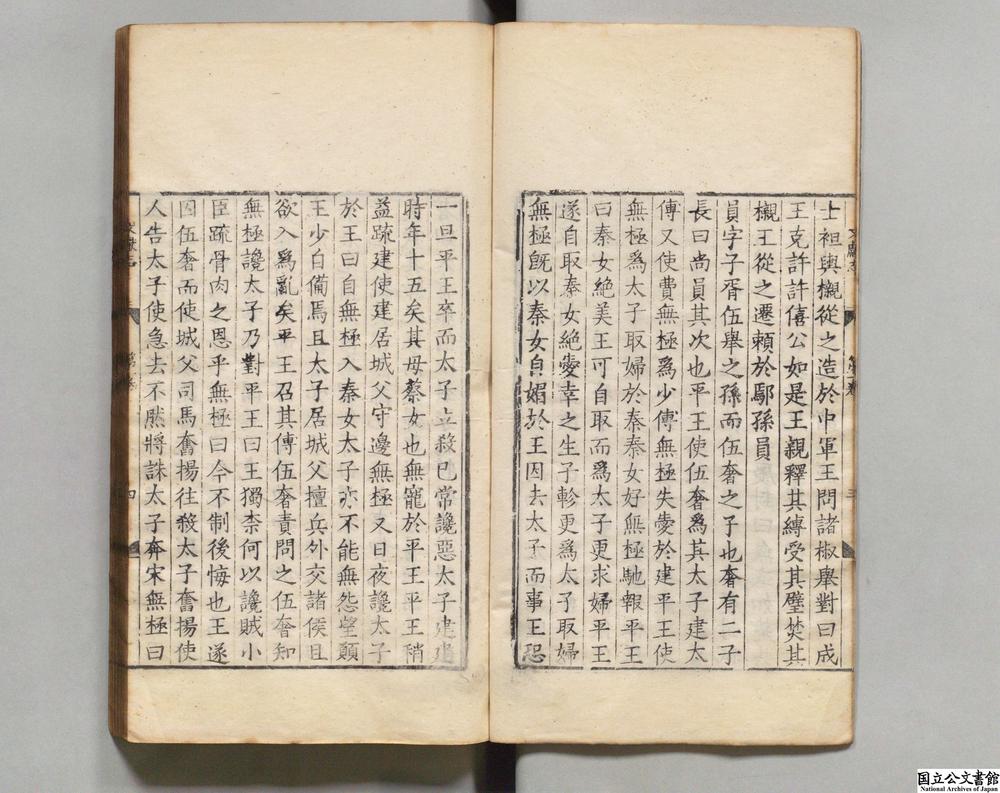 士袒輿櫬從之造於中軍王問諸椒舉對曰成
王克許許僖公如是王親釋其縛受其璧焚其
櫬王從之遷賴於鄢孫員
員字子胥伍舉之孫而伍奢之子也奢有二子
長曰尚員其次也平王使伍奢爲其太子建太
傅又使費無極爲少傅無極失愛於建平王使
無極爲太子取婦於秦秦女好無極馳報平王
曰秦女絶美王可自取而爲太子更求婦平王
遂自取秦女絶愛幸之生子軫更爲太子取婦
無極旣以秦女自媚於王因去太子而事王恐
一旦平王卒而太子立殺已常讒惡太子建建
時年十五矣其母蔡女也無寵於平王平王稍
益疏建使建居城父守邊無極又日夜讒太子
於王曰自無極入秦女太子亦不能無怨望願
王少自備焉且太子居城父擅兵外交諸侯且
欲入爲亂矣平王召其傅伍奢責問之伍奢知
無極讒太子乃對平王曰王獨柰何以讒賊小
臣疏骨肉之恩乎無極曰今不制後悔也王遂
囚伍奢而使城父司馬奮揚往殺太子奮揚使
人告太子使急去不然將誅太子奔宋無極曰
四
国立公文書館
National Archives of Japan